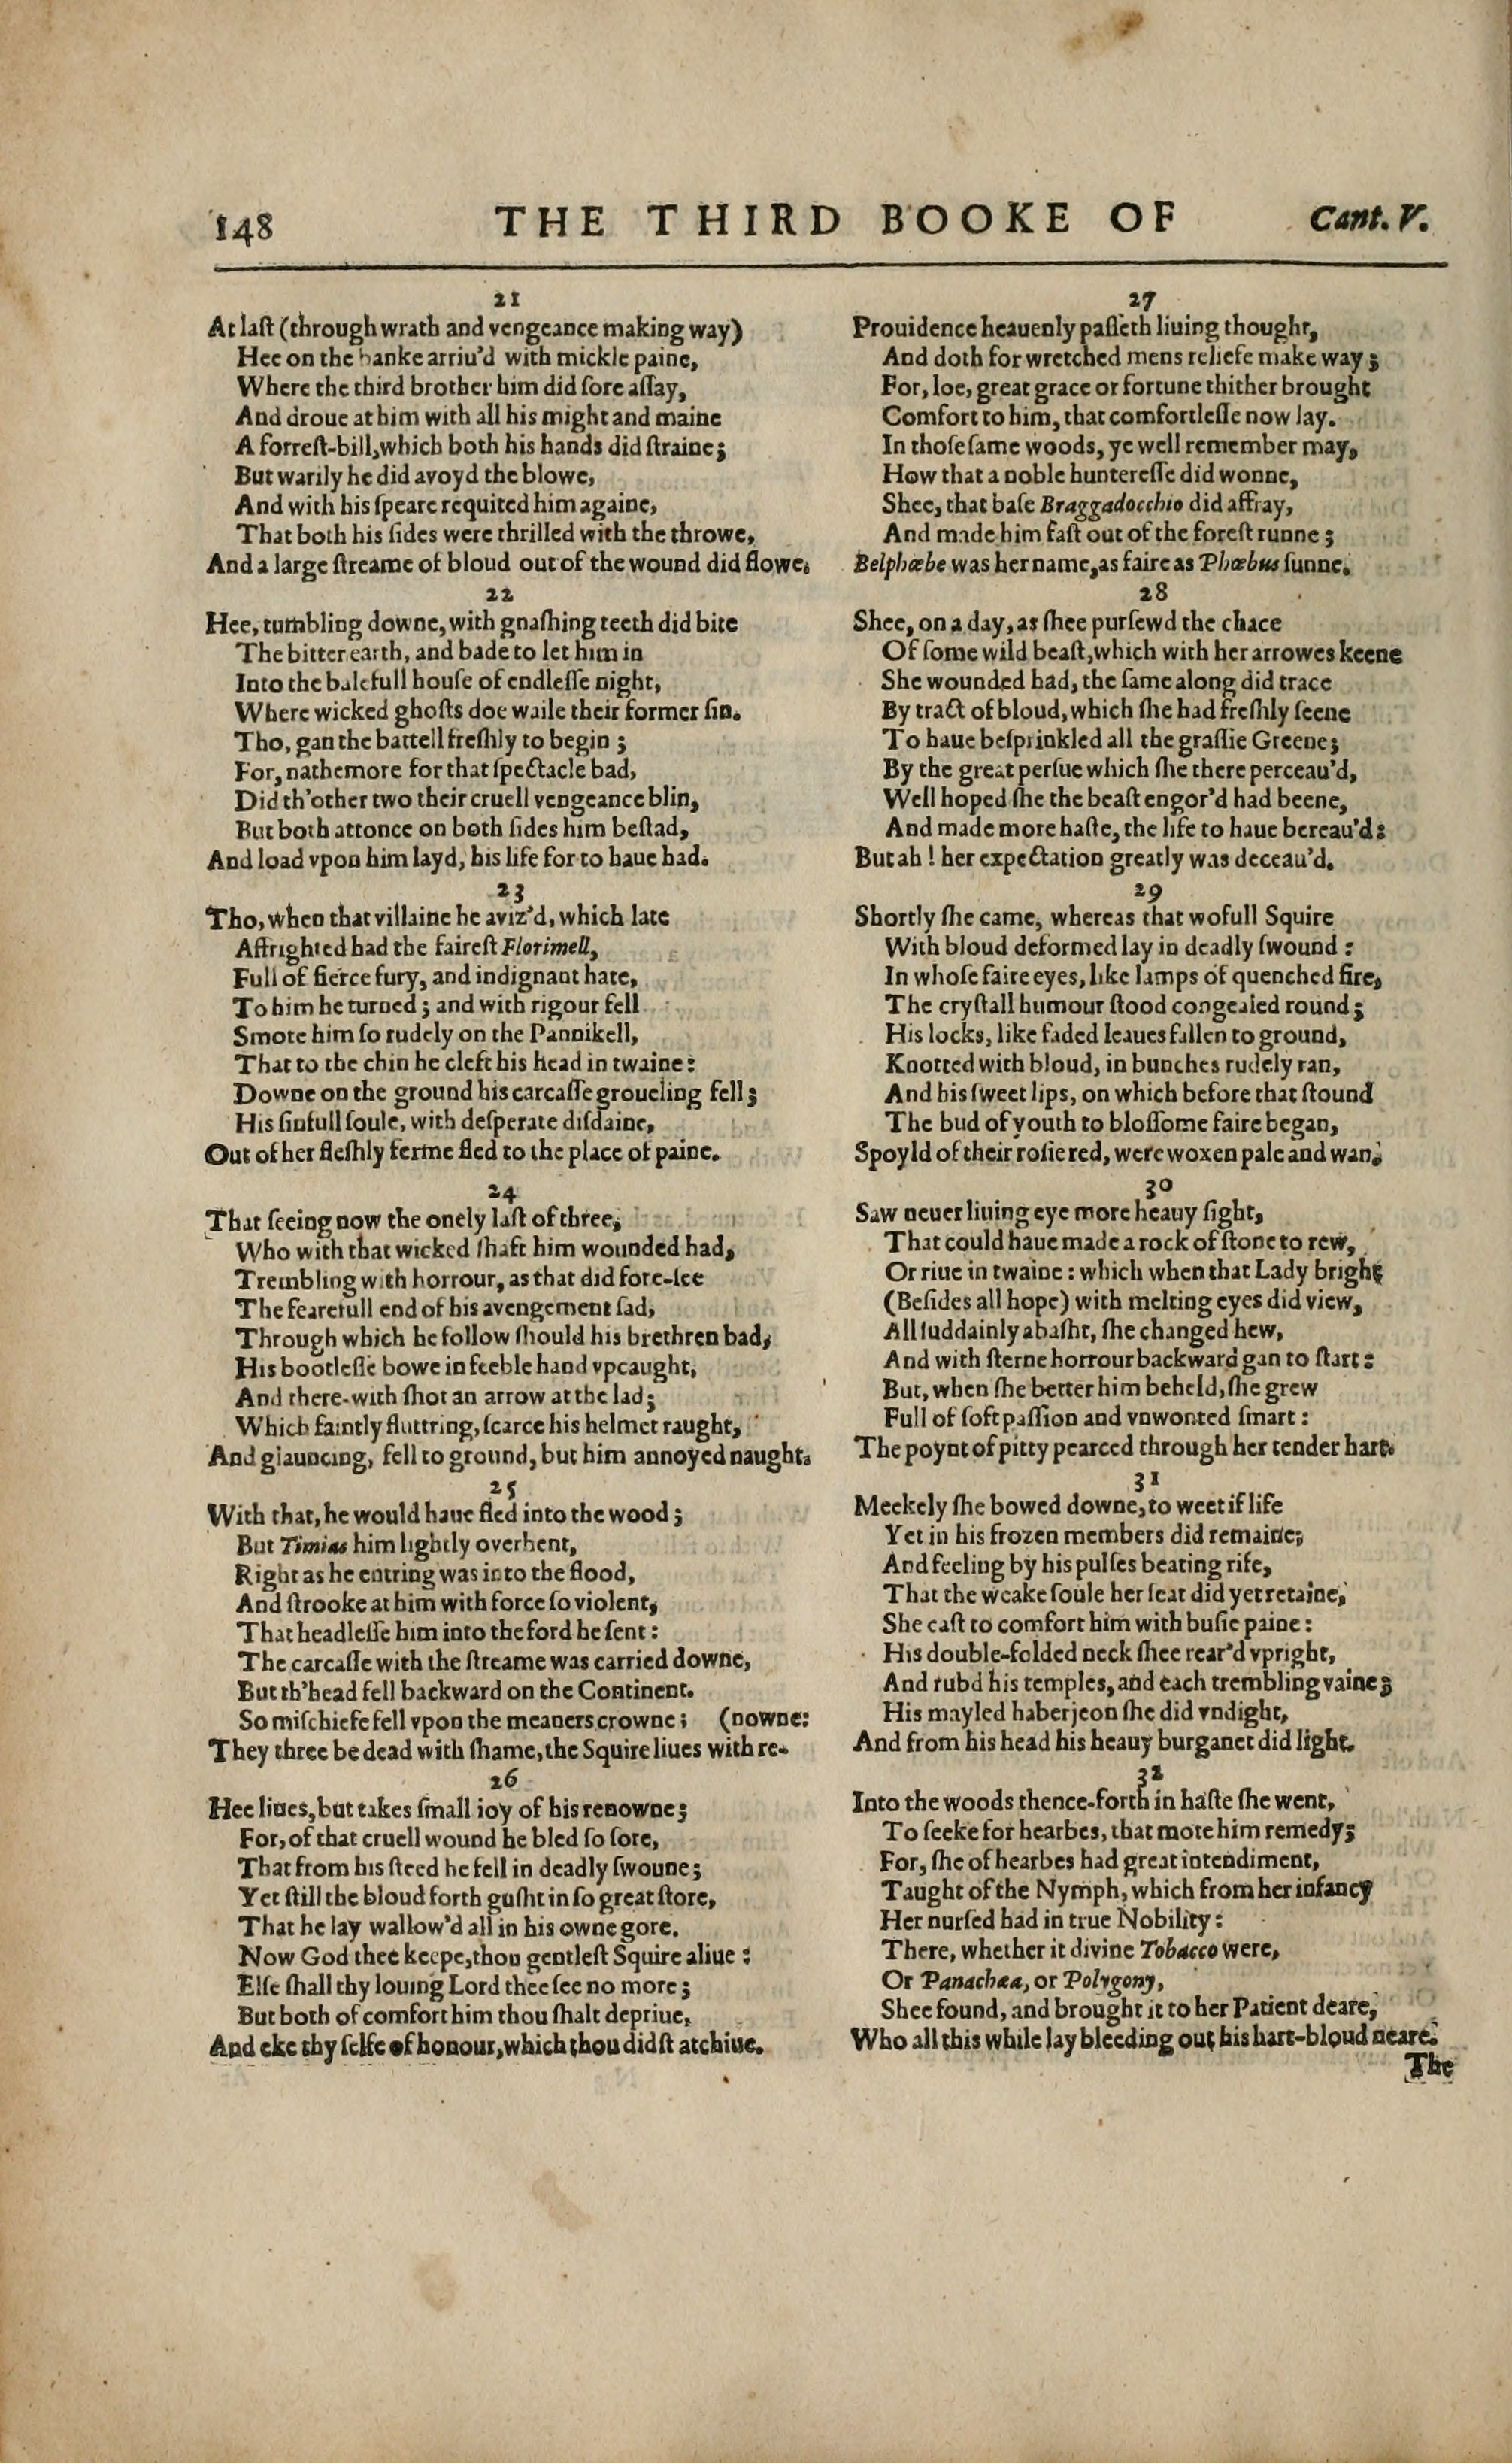 148
THE THIRD BOOKE OF
Cant. V.
21
At laſt (through wrath and vengeance making way)
Hee on the banke arriu'd with mickle paine,
Where the third brother him did ſore aſſay,
And droue at him with all his might and maine
A forreſt-bill, which both his hands did ſtraine;
But warily he did avoyd the blowe,
And with his ſpeare requited him againe,
That both his ſides were thrilled with the throwe,
And a large ſtreame of bloud out of the wound did flowe.
22
Hee, tumbling downe, with gnaſhing teeth did bite
The bitter earth, and bade to let him in
Into the balefull houſe of endleſſe night,
Where wicked ghoſts doe waile their former ſin.
Tho, gan the battell freſhly to begin;
For, nathemore for that ſpectacle bad,
Did th'other two their cruell vengeance blin,
But both attonce on both ſides him beſtad,
And load vpon him layd, his life for to haue had.
23
Tho, when that villaine he aviz'd, which late
Affrighted had the faireſt Florimell,
Full of fierce fury, and indignant hate,
To him he turned; and with rigour fell
Smote him ſo rudely on the Pannikell,
That to the chin he cleft his head in twaine:
Downe on the ground his carcaſſe groueling fell;
His ſinfull ſoule, with deſperate diſdaine,
Out of her fleſhly ferme fled to the place of paine.
24
That ſeeing now the onely laſt of three,
Who with that wicked ſhaft him wounded had,
Trembling with horrour, as that did fore-ſee
The fearefull end of his avengement ſad,
Through which he follow ſhould his brethren bad,
His bootleſſe bowe in feeble hand vpcaught,
And there-with ſhot an arrow at the lad;
Which faintly fluttring, ſcarce his helmet raught,
And glauncing, fell to ground, but him annoyed naught.
25
With that, he would haue fled into the wood;
But Timias him lightly overhent,
Right as he entring was into the flood,
And ſtrooke at him with force ſo violent,
That headleſſe him into the ford he ſent:
The carcaſſe with the ſtreame was carried downe,
But th'head fell backward on the Continent.
So miſchiefe fell vpon the meaners crowne; (nowne:
They three be dead with ſhame, the Squire liues with re-
26
Hee liues, but takes ſmall ioy of his renowne;
For, of that cruell wound he bled ſo ſore,
That from his ſteed he fell in deadly ſwoune;
Yet ſtill the bloud forth guſht in ſo great ſtore,
That he lay wallow'd all in his owne gore.
Now God thee keepe, thou gentleſt Squire aliue:
Elſe ſhall thy louing Lord thee ſee no more;
But both of comfort him thou ſhalt depriue,
And eke thy ſelfe of honour, which thou didſt atchiue.
27
Prouidence heauenly paſſeth liuing thought,
And doth for wretched mens reliefe make way;
For, loe, great grace or fortune thither brought
Comfort to him, that comfortleſſe now lay.
In thoſe ſame woods, ye well remember may,
How that a noble huntereſſe did wonne,
Shee, that baſe Braggadocchio did affray,
And made him faſt out of the foreſt runne;
Belphœbe was her name, as faire as Phœbus ſunne.
28
Shee, on a day, as ſhee purſewd the chace
Of ſome wild beaſt, which with her arrowes keene
She wounded had, the ſame along did trace
By tract of bloud, which ſhe had freſhly ſeene
To haue beſprinkled all the graſſie Greene;
By the great perſue which ſhe there perceau'd,
Well hoped ſhe the beaſt engor'd had beene,
And made more haſte, the life to haue bereau'd:
But ah! her expectation greatly was deceau'd.
29
Shortly ſhe came, whereas that wofull Squire
With bloud deformed lay in deadly ſwound:
In whoſe faire eyes, like lamps of quenched fire,
The cryſtall humour ſtood congealed round;
His locks, like faded leaues fallen to ground,
Knotted with bloud, in bunches rudely ran,
And his ſweet lips, on which before that ſtound
The bud of youth to bloſſome faire began,
Spoyld of their roſie red, were woxen pale and wan.
30
Saw neuer liuing eye more heauy ſight,
That could haue made a rock of ſtone to rew,
Or riue in twaine: which when that Lady bright
(Beſides all hope) with melting eyes did view,
All ſuddainly abaſht, ſhe changed hew,
And with ſterne horrour backward gan to ſtart:
But, when ſhe better him beheld, ſhe grew
Full of ſoft paſſion and vnwonted ſmart:
The poynt of pitty pearced through her tender hart.
31
Meekely ſhe bowed downe, to weet if life
Yet in his frozen members did remaine;
And feeling by his pulſes beating rife,
That the weake ſoule her ſeat did yet retaine,
She caſt to comfort him with buſie paine:
His double-folded neck ſhee rear'd vpright,
And rubd his temples, and each trembling vaine;
His mayled haberjeon ſhe did vndight,
And from his head his heauy burganet did light.
32
Into the woods thence-forth in haſte ſhe went,
To ſeeke for hearbes, that mote him remedy;
For, ſhe of hearbes had great intendiment,
Taught of the Nymph, which from her infancy
Her nurſed had in true Nobility:
There, whether it divine Tobacco were,
Or Panachæa, or Polygony,
Shee found, and brought it to her Patient deare,
Who all this while lay bleeding out his hart-bloud neare.
The